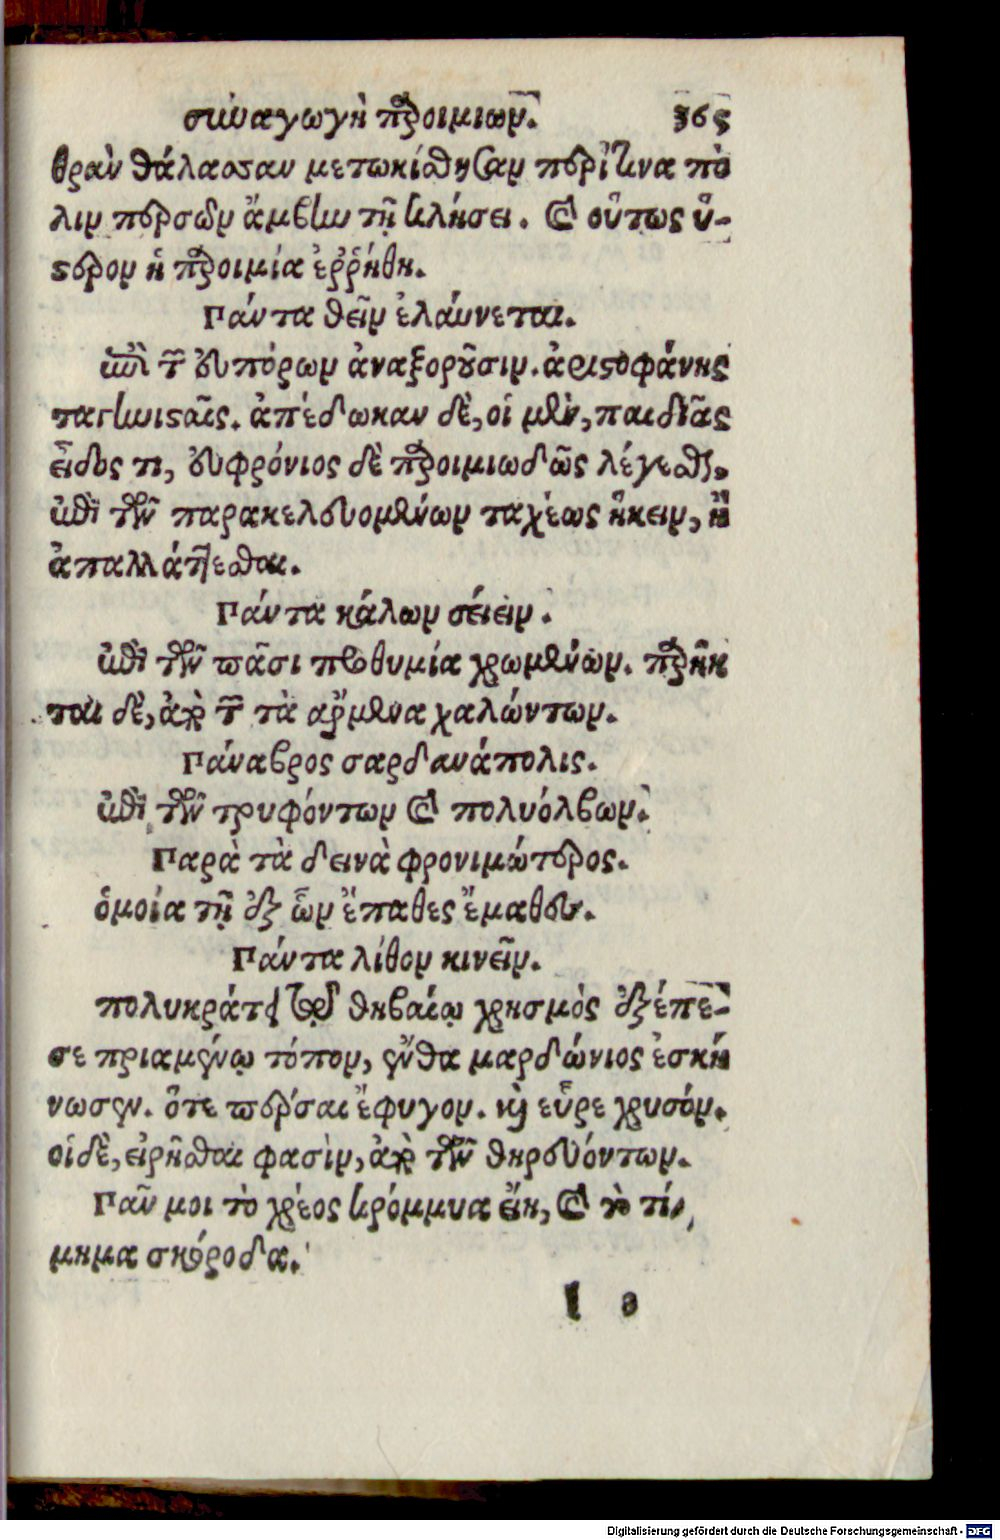 συναγωγὴ παροιμιῶν. 365
θρὰν θάλασσαν μετωκίσθησαν περί τινα πό
λιν περσῶν ἄμβην τῇ κλήσει. καὶ οὕτως ὕ-
στερον ἡ παροιμία ἐῤῥήθη.
Πάντα θεῖν ἐλαύνεται.
ἐπὶ τῶν εὐπόρων ἀναξοροῦσιν. ἀριστοφάνης
ταγηνισταῖς. ἀπέδωκαν δὲ, οἱ μὲν, παιδιᾶς
εἶδός τι, εὐφρόνιος δὲ παροιμιωδῶς λέγεσθαι,
ἐπὶ τῶν παρακελευομένων ταχέως ἥκειν, ἢ
ἀπαλλάττεσθαι.
Πάντα κάλων σείειν.
ἐπὶ τῶν πᾶσι προθυμίᾳ χρωμένων. παρῆκ
ται δὲ, ἀπὸ τῶν τὰ ἄρμενα χαλώντων.
Πάναβρος σαρδανάπολις.
ἐπὶ τῶν τρυφόντων καὶ πολυόλβων.
Παρὰ τὰ δεινὰ φρονιμώτερος.
ὁμοία τῇ ἐξ ὧν ἔπαθες ἔμαθες.
Πάντα λίθον κινεῖν.
πολυκράτει τῷ θηβαίῳ χρησμὸς ἐξέπε-
σε πριαμένῳ τόπον, ἔνθα μαρδώνιος ἐσκή
νωσεν. ὅτε πέρσαι ἔφυγον. καὶ εὗρε χρυσόν.
οἱ δὲ, εἰρῆσθαι φασὶν, ἀπὸ τῶν θηρευόντων.
Πᾶν μοι τὸ χρέος κρόμμυα εἴη, καὶ τὸ τί-
μημα σκόροδα.
Digitalisierung gefördert durch die Deutsche Forschungsgemeinschaft - DFG